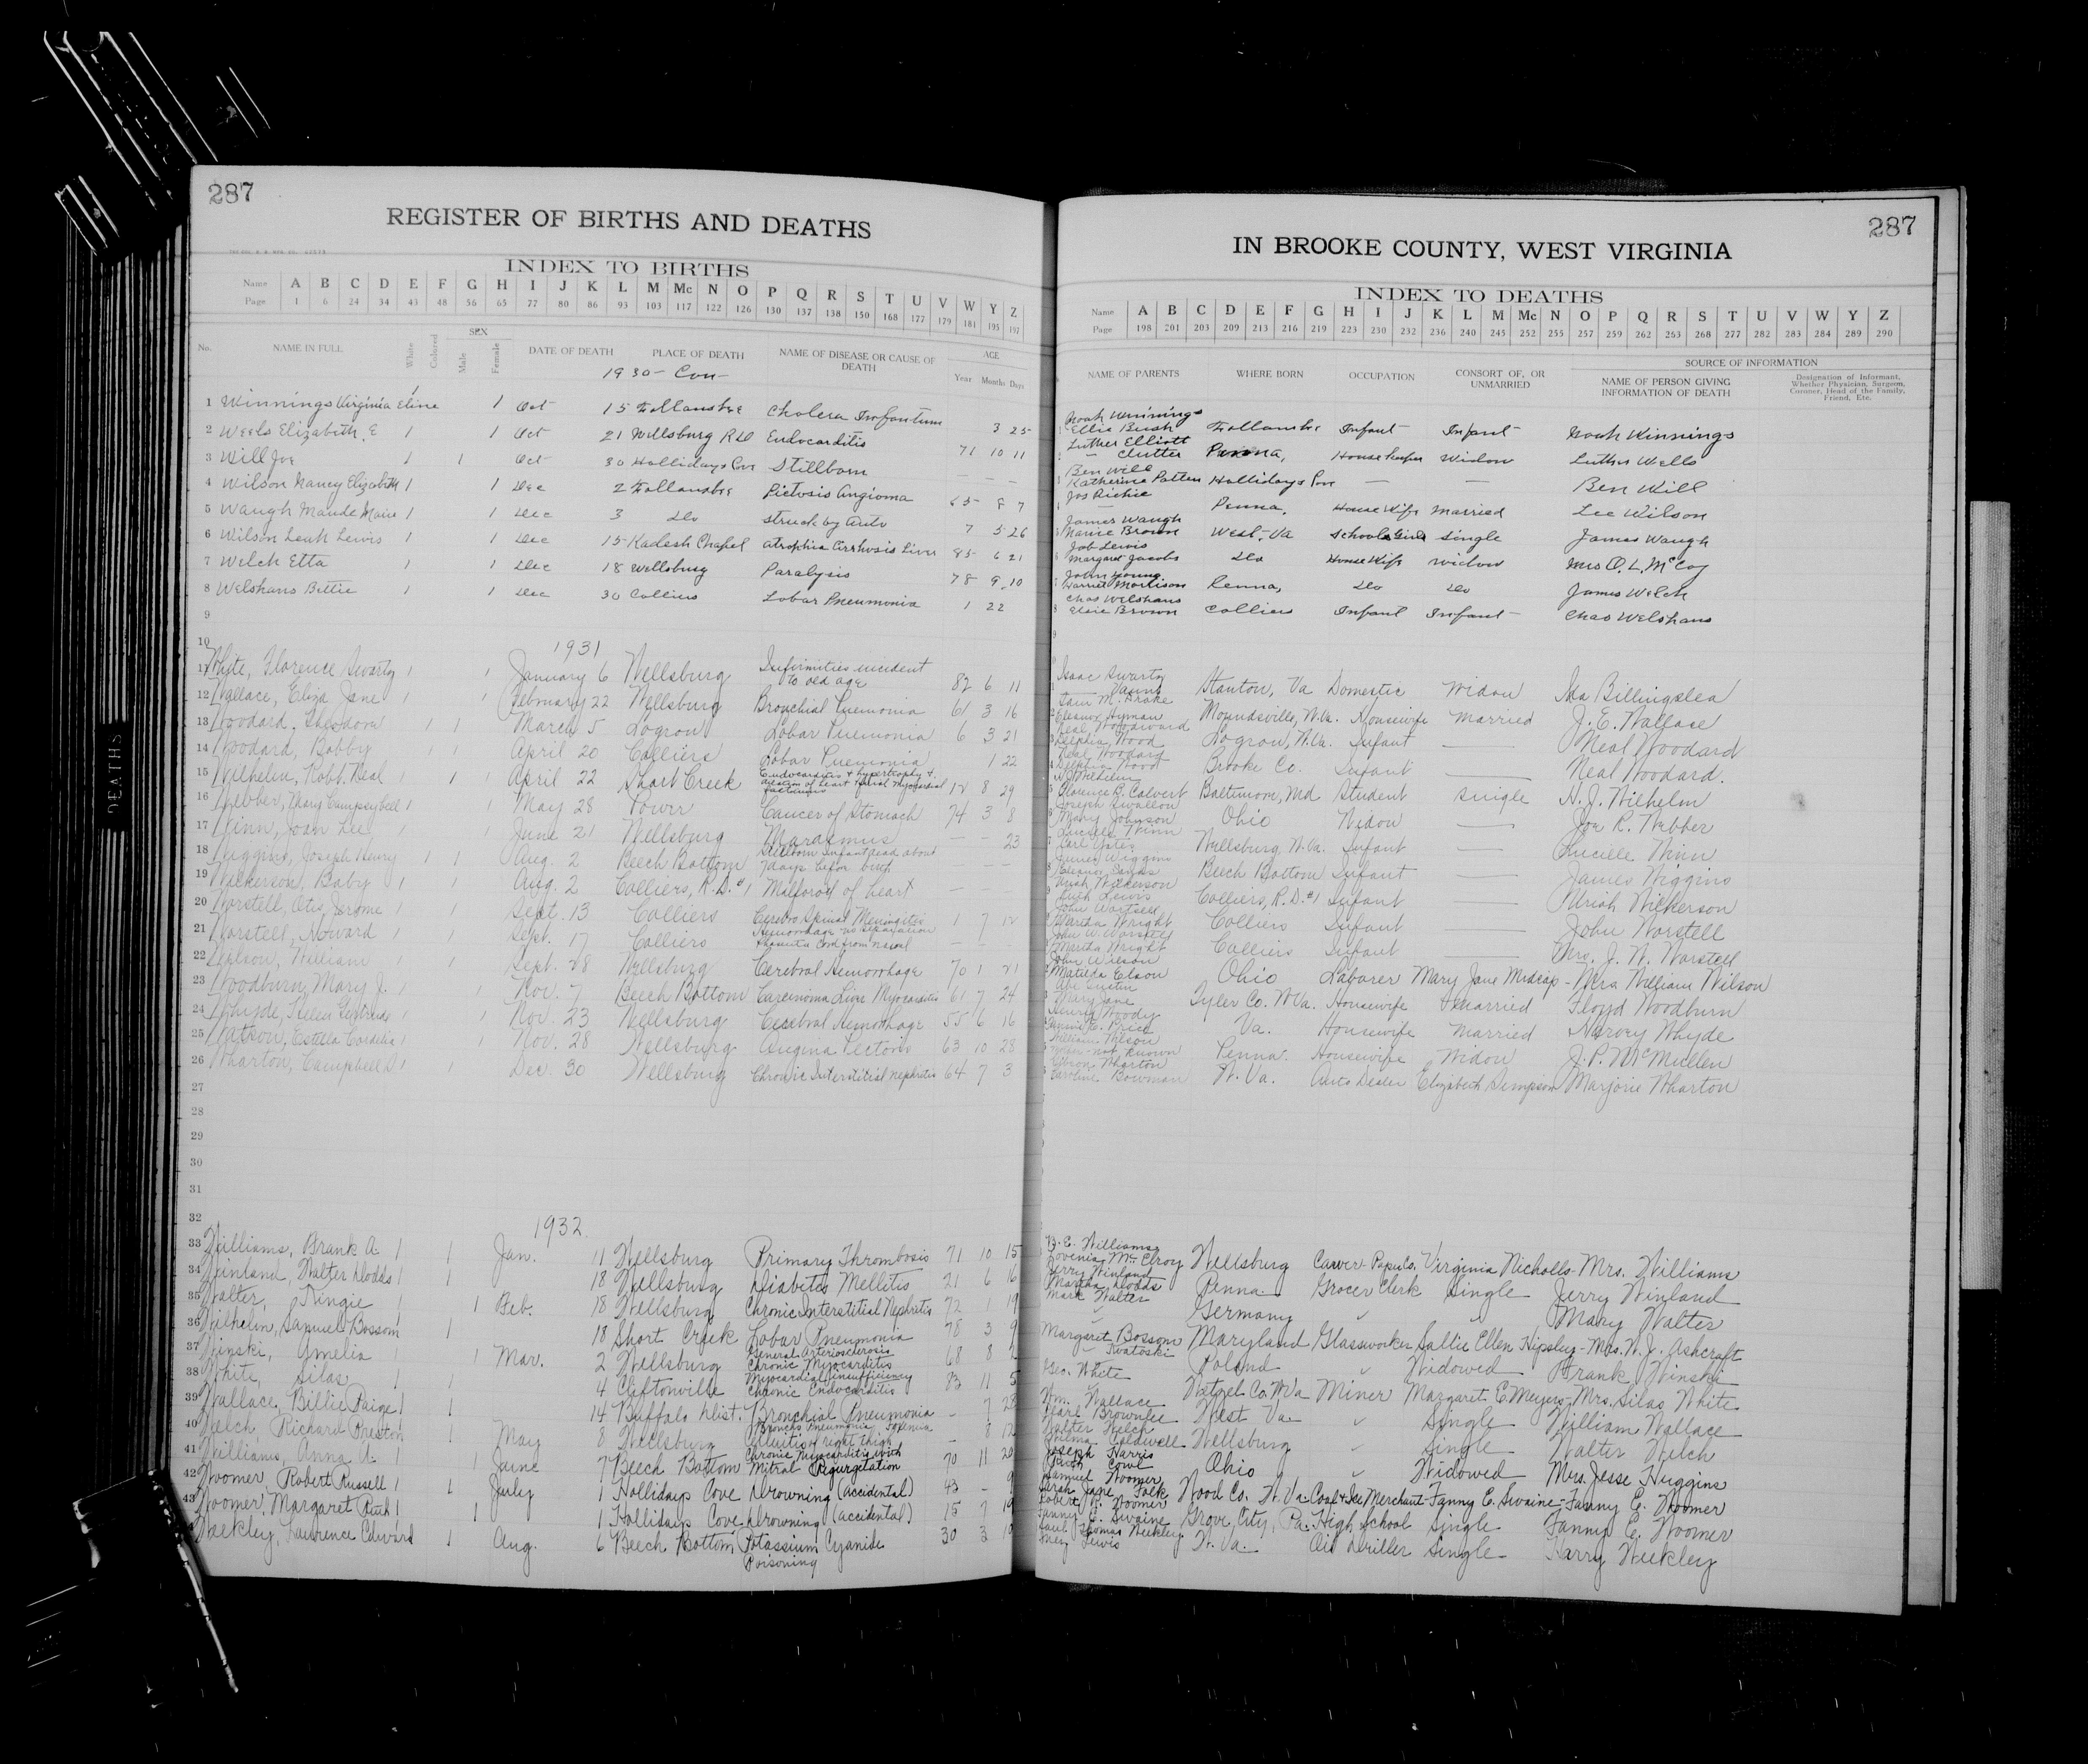 287
REGISTER OF BIRTHS AND DEATHS
INDEX TO BIRTHS
Name A B C D E F G H I J K L M Mc N O P Q R S T U V W Y Z
Page 1 6 24 34 43 48 56 65 77 80 86 93 103 117 122 126 130 137 138 150 168 177 179 181 195 197
No. NAME IN FULL White Colored SEX Male Female DATE OF DEATH PLACE OF DEATH NAME OF DISEASE OR CAUSE OF DEATH AGE Year Months Days
1930 - Con -
1 Winnings Virginia Eline 1 1 Oct 15 Follansbee Cholera Infantum 3 25
2 Wells Elizabeth, E 1 1 Oct 21 Wellsburg RD Endocarditis 71 10 11
3 Will Joe 1 1 Oct 30 Hollidays Cove Stillborn — —
4 Wilson Nancy Elizabeth 1 1 Dec 2 Follansbee Angioma 65 8 7
5 Waugh Maude Marie 1 1 Dec 3 Do struck by Auto 7 5 26
6 Wilson Leah Lewis 1 1 Dec 15 Kadesh Chapel Atrophia Cirrhosis Liver 85 6 21
7 Welch Etta 1 1 Dec 18 Wellsburg Paralysis 78 9 10
8 Welshans Bettie 1 1 Dec 30 Colliers Lobar Pneumonia 1 22
9
10 1931
11 White, Florence Swartz 1 1 January 6 Wellsburg Infirmities incident to old age 82 6 11
12 Wallace, Eliza Jane 1 1 February 22 Wellsburg Bronchial Pneumonia 61 3 16
13 Woodard, Theodora 1 1 March 5 Logrow Lobar Pneumonia 6 3 21
14 Woodard, Bobby 1 1 April 20 Colliers Lobar Pneumonia 1 22
15 Wilhelm, Robt. Neal 1 1 1 April 22 Short Creek Endocarditis & hypertrophy & dilation of heart 12 8 29
16 Webber, Mary Campsybell 1 1 May 28 Power Cancer of Stomach 74 3 8
17 Winn, Joan Lee 1 1 June 21 Wellsburg Marasmus — — 23
18 Wiggins, Joseph Henry 1 1 Aug. 2 Beech Bottom Stillborn Infant dead about 7 days before birth — — —
19 Wilkerson, Baby 1 1 Aug. 2 Colliers, R.D. #1 Milford of heart — — —
20 Worstell, Otis Jerome 1 1 Sept. 13 Colliers Cerebro Spinal Meningitis 1 7 12
21 Worstell, Howard 1 1 Sept. 17 Colliers Hemorrhage cord from navel — — —
22 Wilson, William 1 1 Sept. 28 Wellsburg Cerebral Hemorrhage 70 1 21
23 Woodburn, Mary J. 1 1 Nov. 7 Beech Bottom Carcinoma Liver Myocarditis 61 7 24
24 Whyde, Helen Gertrude 1 1 Nov. 23 Wellsburg Cerebral Hemorrhage 55 6 16
25 Watson, Estella Cordelia 1 1 Nov. 28 Wellsburg Angina Pectoris 63 10 28
26 Wharton, Campbell D. 1 1 Dec. 30 Wellsburg Chronic Interstitial Nephritis 64 7 3
27
28
29
30
31
32 1932
33 Williams, Frank A. 1 1 Jan. 11 Wellsburg Primary Thrombosis 71 10 15
34 Winland, Walter Dodds 1 1 18 Wellsburg Diabetis Mellitis 21 6 16
35 Walter, Kingie 1 1 Feb. 18 Wellsburg Chronic Interstitial Nephritis 72 1 19
36 Wilhelm, Samuel Bossom 1 18 Short Creek Lobar Pneumonia 78 3 9
37 Winski, Amelia 1 1 Mar. 2 Wellsburg General Arteriosclerosis Chronic Myocarditis 68 8
38 White, Silas 1 1 4 Cliftonville Myocardial Insufficiency Chronic Endocarditis 83 11 5
39 Wallace, Billie Paige 1 1 14 Buffalo Dist. Bronchial Pneumonia — 7 28
40 Welch, Richard Preston 1 1 May 8 Wellsburg Broncho Pneumonia Cellulitis right thigh — 8 12
41 Williams, Anna A. 1 1 June 7 Beech Bottom Chronic Myocarditis with Mitral Regurgetation 70 11 20
42 Woomer, Robert Russell 1 1 July 1 Hollidays Cove Drowning (accidental) 43 — 9
43 Woomer, Margaret Ruth 1 1 1 Hollidays Cove Drowning (accidental) 15 7 19
Weekley, Lawrence Edward 1 Aug. 6 Beech Bottom Potassium Cyanide Poisoning 30 3 10
DEATHS
287
IN BROOKE COUNTY, WEST VIRGINIA
INDEX TO DEATHS
Name A B C D E F G H I J K L M Mc N O P Q R S T U V W Y Z
Page 198 201 203 209 213 216 219 223 230 232 236 240 245 252 255 257 259 262 263 268 277 282 283 284 289 290
NAME OF PARENTS WHERE BORN OCCUPATION CONSORT OF, OR UNMARRIED SOURCE OF INFORMATION NAME OF PERSON GIVING INFORMATION OF DEATH Designation of Informant, Whether Physician, Surgeon, Coroner, Head of the Family, Friend, Etc.
Noah Winnings
Ellie Bush Follansbe Infant Infant Noah Winnings
Luther Elliott
— Clutter Penna, House keeper Widow Luther Wells
Ben Will
Katherine Patten Hollidays Cove — — Ben Will
Jos Richie
— Penna, House Wife Married Lee Wilson
James Waugh
Marie Brown West-Va School Girl Single James Waugh
Job Lewis
Margaret Jacobs Do House Wife Widow Mrs O. L. McCoy
John Young
Harriet Morlison Penna, Do Do James Welch
Chas Welshans
Elsie Brown Colliers Infant Infant Chas Welshans
Isaac Swartz
Vaung Stanton, Va Domestic Widow Ida Billingslea
Sam M. Drake
Eleanor Hyman Moundsville, W.Va. Housewife Married J. E. Wallace
Neal Woodward
Delphia Wood Logrow, W.Va. Infant — Neal Woodard
Neal Woodard
Delphia Wood Brooke Co. Infant — Neal Woodard.
H. J. Wilhelm
Florence B. Calvert Baltimore, Md Student Single H. J. Wilhelm
Joseph Swallow
Mary Johnson Ohio Widow — Joe R. Webber
Lucille Winn
Carl Yates Wellsburg, W.Va. Infant — Lucille Winn
James Wiggins
Eleanor Sands Beech Bottom Infant — James Wiggins
Uriah Wilkerson
Ruth Lewis Colliers, R.D. #1 Infant — Uriah Wilkerson
John Worstell
Martha Wright Colliers Infant — John Worstell
John W. Worstell
Martha Wright Colliers Infant — Mrs. J. W. Worstell
John Wilson
Matilda Elson Ohio Laborer Mary Jane Midcap - Mrs. William Wilson
Abe Sustin
Mary Jane Tyler Co. W.Va. Housewife Married Floyd Woodburn
Henry Woody
Price Va. Housewife Married Harvey Whyde
William Wilson
not known Penna. Housewife Widow J. P. McMullen
Wharton
Caroline Bowman W. Va. Auto Dealer Elizabeth Simpson Marjorie Wharton
B. E. Williams
Lovenia McElroy Wellsburg Carver-Paper Co. Virginia Nicholls - Mrs. Williams
Jerry Winland
Martha Dodds Penna. Grocer Clerk Single Jerry Winland
Mark Walter
Germany Mary Walter
Margaret Bossom Maryland Glassworker Sallie Ellen Hipsley - Mrs. W. J. Ashcraft
— Twatoski Poland Widowed Frank Winski
Geo. White
Wetzel Co. W.Va Miner Margaret E. Meyers - Mrs. Silas White
Wm. Wallace
Pearl Brownlee West Va. Single William Wallace
Walter Welch
Wilma Caldwell Wellsburg Single Walter Welch
Joseph Harris
Ruth Cowl Ohio Widowed Mrs. Jesse Huggins
Samuel Woomer
Sarah Jane Folk Wood Co. W. Va. Coal & Ice Merchant Fanny E. Swaine - Fanny E. Woomer
Robert R. Woomer
Fanny E. Swaine Grove City, Pa. High School Single Fanny E. Woomer
Thomas Weekley
Lewis W. Va. Oil Driller Single Harry Weekley